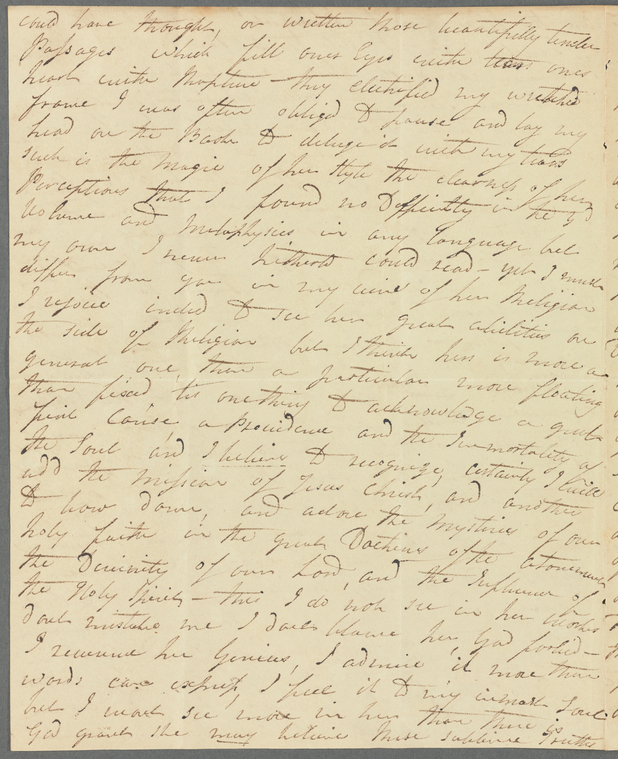 could have thought, or written those beautifully tender
Passages which fill ones Eyes with tears ones
heart with Rapture – they electrified my wretched
frame I was often obliged to pause and lay my
head on the Book & deluge it with my tears
such is the Magic of her style the clearness of her
Perceptions that I found no Difficulty in the 3d
Volume and Metaphysics in any Language but
my own I never hitherto could read – yet I must
differ from you in my view of her Religion
I rejoice indeed to see her great abilities on
the side of Religion but I think hers is more a
general one, than a particular more floating
than fixed 'tis one thing to acknowledge a great
first Cause a Providence and the Immortality of
the Soul and I believe to recognize, certainly I will
add the Mission of Jesus Christ, and another
to bow down, and adore the mysteries of our
holy faith in the great Doctrines of the atonement
the Divinity of our Lord, and the Influence of
the Holy Spirit – this I do not see in her Works
dont mistake me I dont blame her God forbid –
I reverend her Genius, I admire it more than
words can express, I feel it to my inmost Soul
but I want see more in her than there is
God grant she may believe these sublime Truths